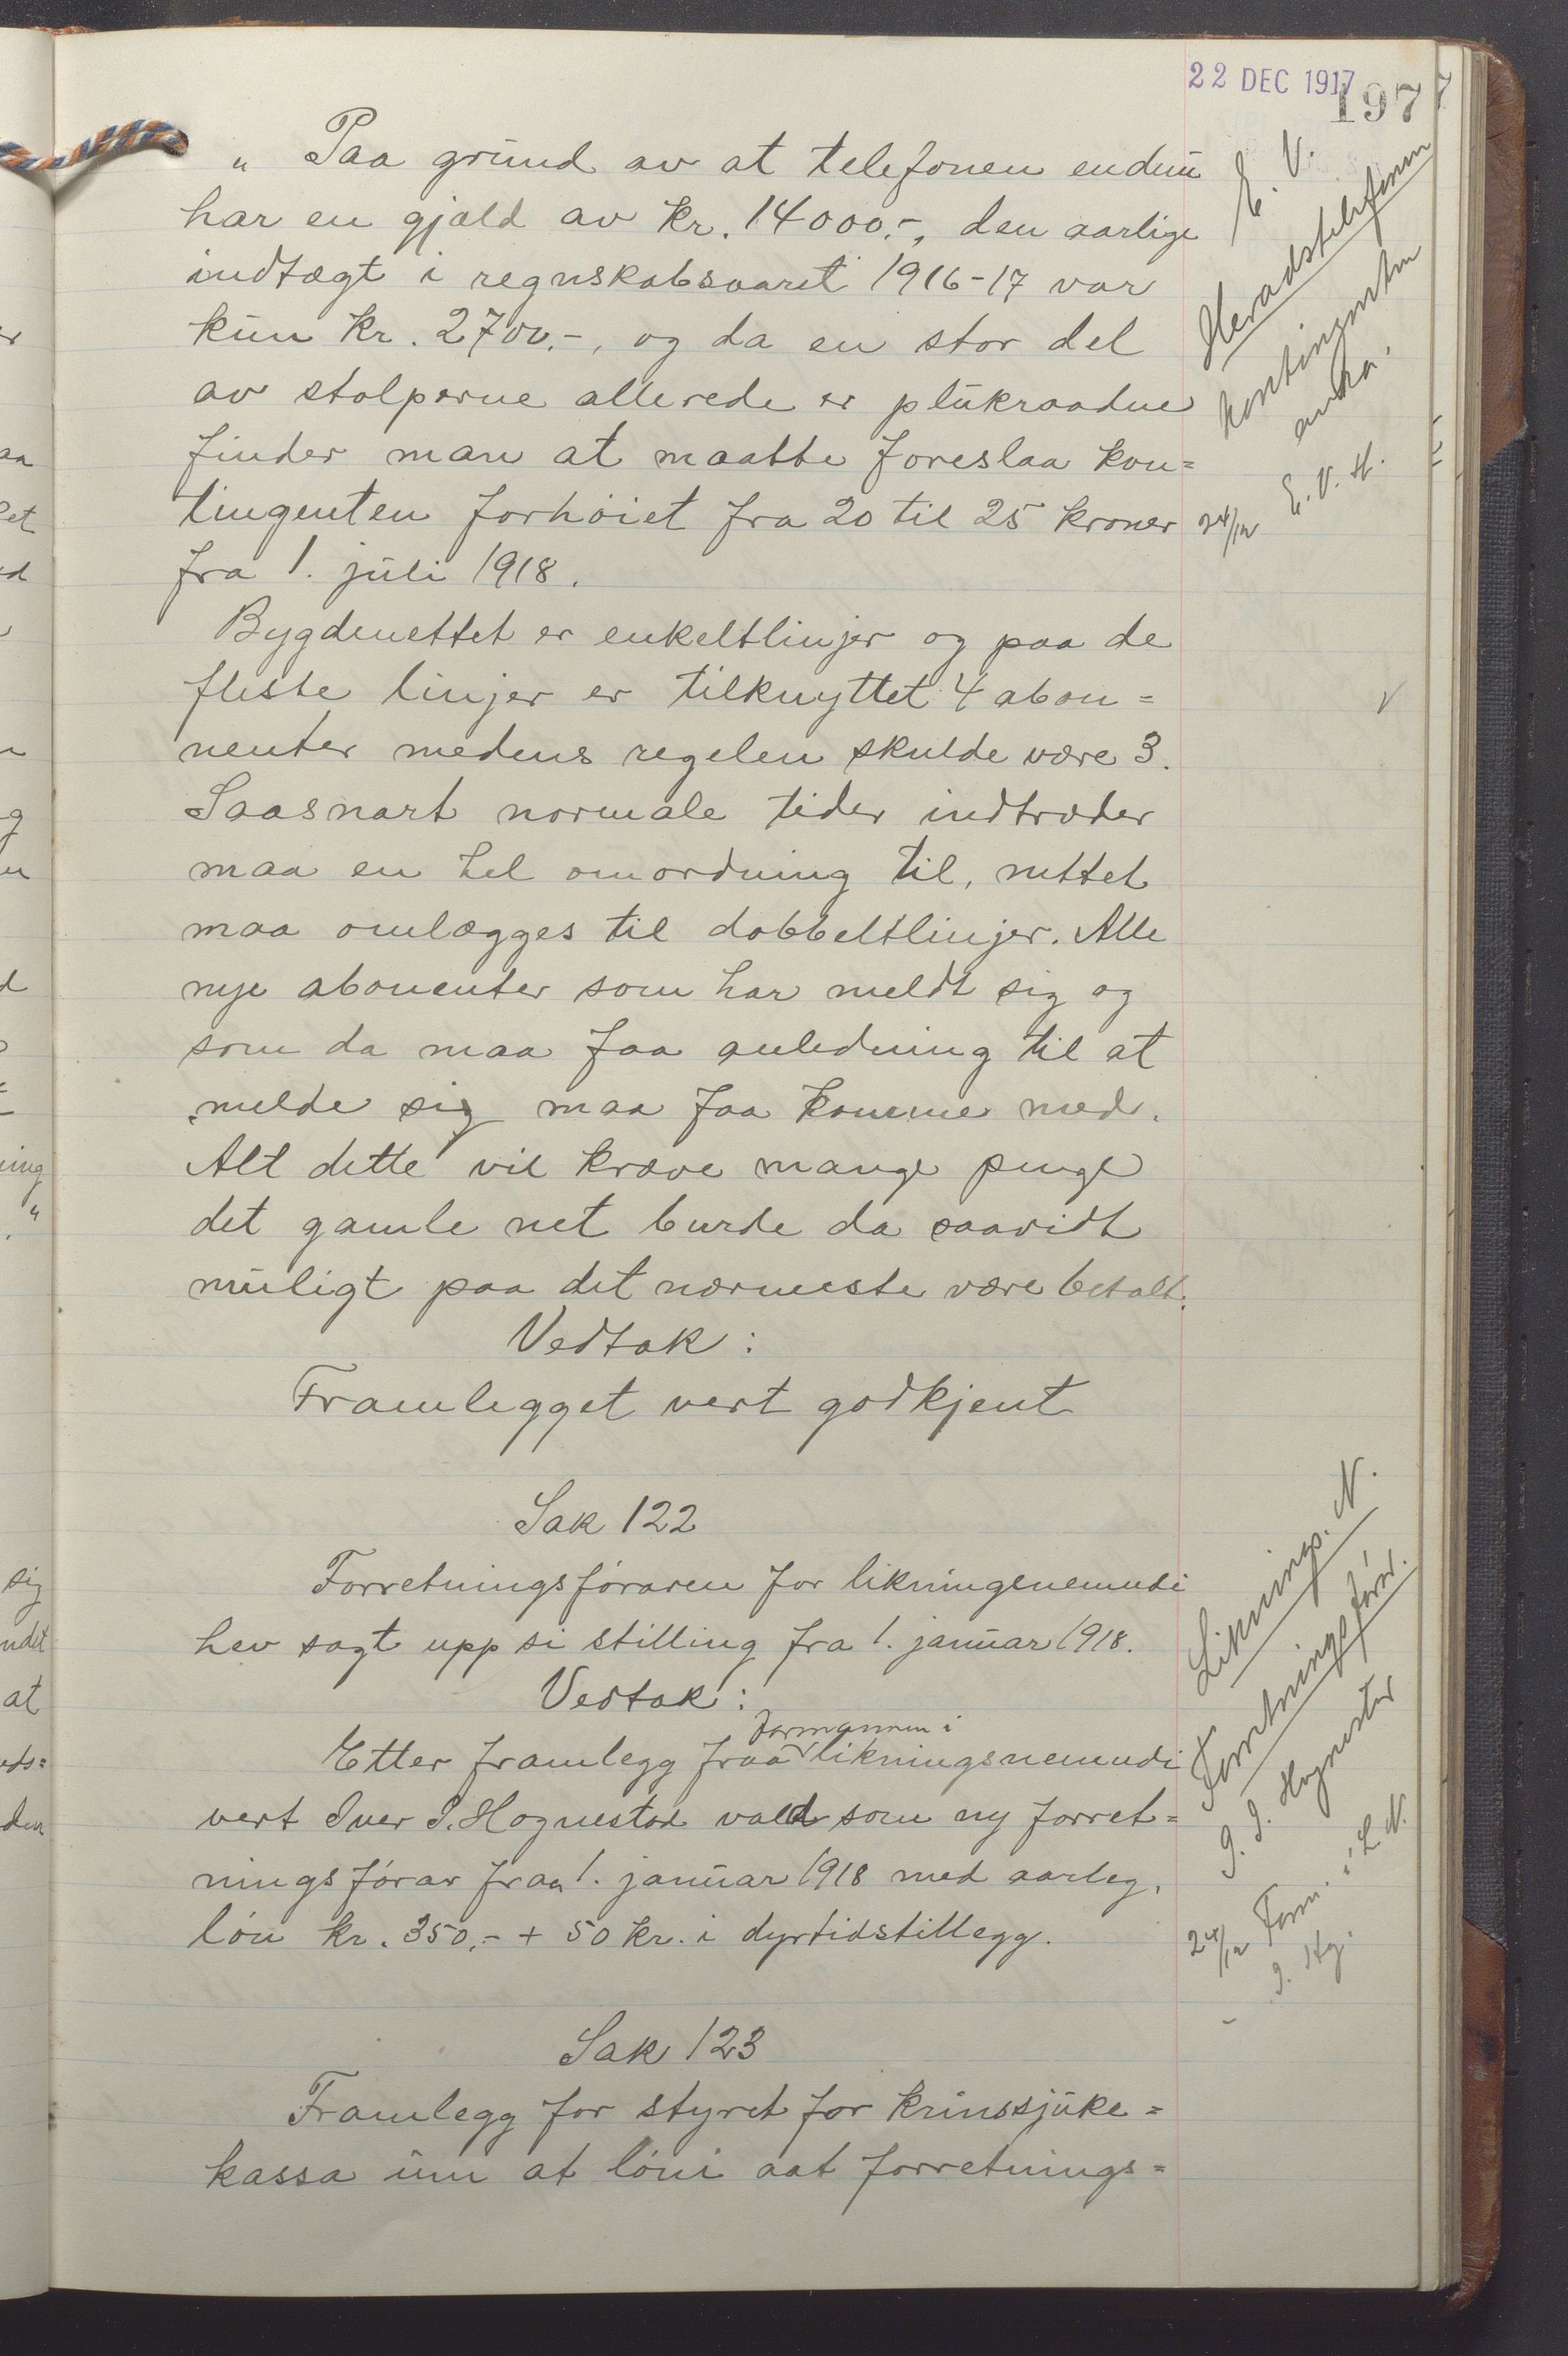 22 DEC 1917
197
„ Paa grund av at telefonen endnu
har en gjæld av kr. 14000.-, den aarlige
indtægt i regnskabsaaret 1916-17 var
kun kr. 2700.-, og da en stor del
av stolperne allerede er plukraadne
finder man at maatte foreslaa kon=
tingenten forhöiet fra 20 til 25 kroner
fra 1. juli 1918.
Bygdenettet er enkeltlinjer og paa de
fleste linjer er tilknyttet 4 abon=
nenter medens regelen skulde være 3.
Saasnart normale tider indtræder
maa en hel omordning til, nettet
maa omlægges til dobbeltlinjer. Alle
nye abonenter som har meldt sig og
som da maa faa anledning til at
melde sig maa faa komme med.
Alt dette vil kræve mange penge
det gamle net burde da saavidt
muligt paa det nærmeste være betalt.
Vedtak:
Framlegget vert godkjent
Sak 122
Forretningsföraren for likningsnemndi
hev sagt upp si stilling fra 1. januar 1918.
Vedtak:
formannen i
Etter framlegg fraa likningsnemndi
vert Iver I. Hognestad vald som ny forret=
ningsförar fraa 1. januar 1918 med aarleg.
lön kr. 350.- + 50 kr. i dyrtidstillegg.
Sak 123
Framlegg for styret for krinssjuke=
kassa um at löni aat forretnings=
E. V.
Heradstelefonen
kontingenten
E. V. H.
24/12
Liknings. N.
Forretningsförar.
I. I. Hognestad
24/12 Form. i L. N.
I. Hg.